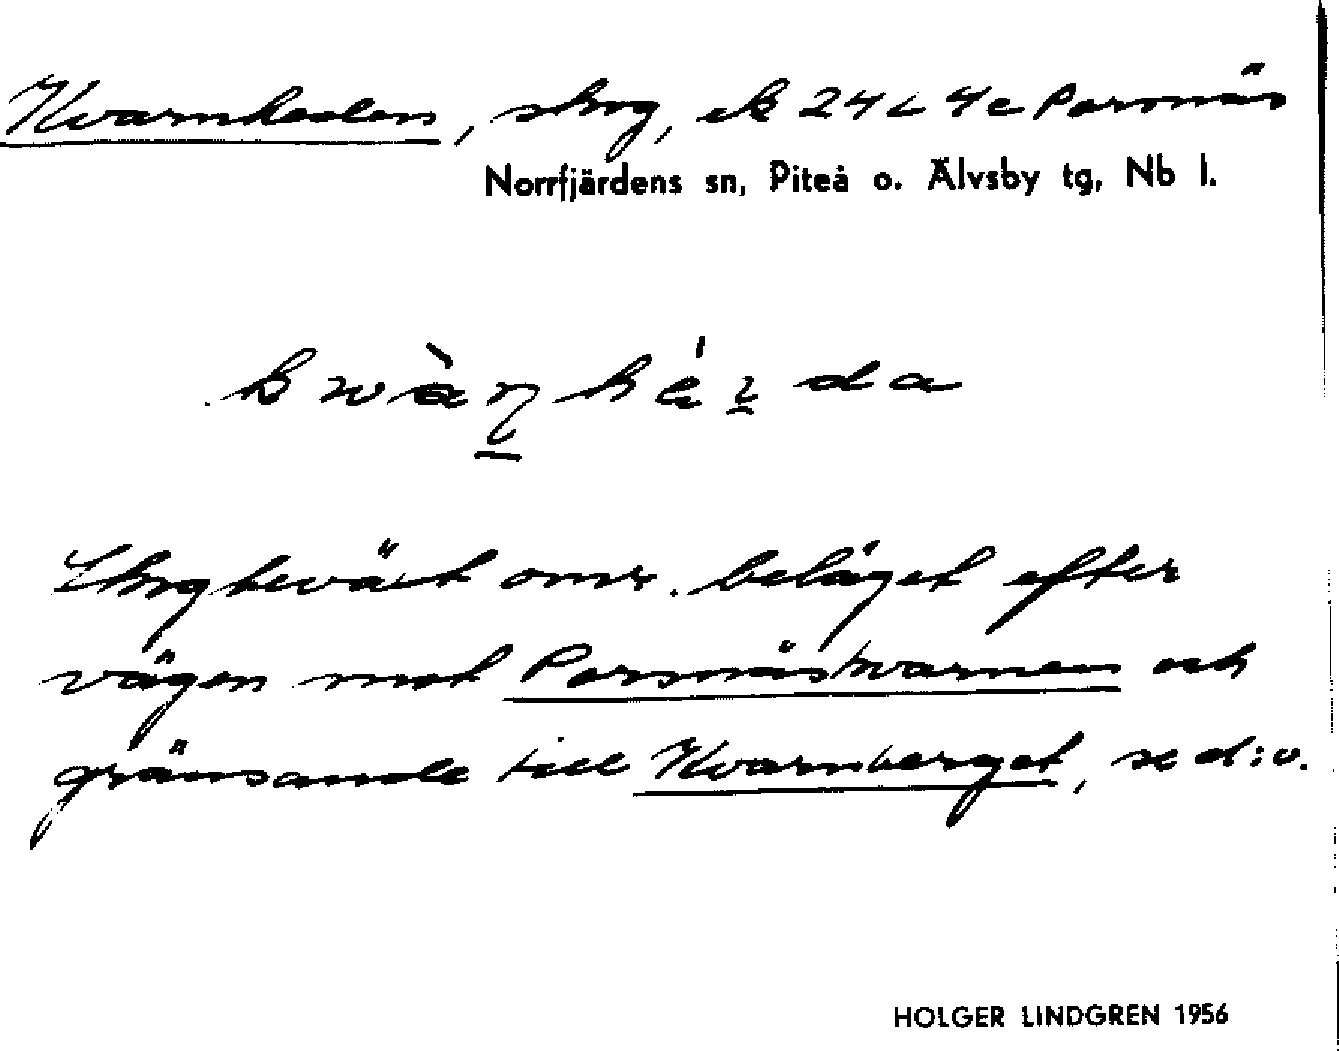 Kvarnheden, skog, ek 24 L 4c Porsnäs
Norrfjärdens sn, Piteå o. Älvsby tg, Nb l.
Skogbeväxt omr. beläget efter
vägen mot Porsnäskvarnen och
gränsande till Kvarnberget, se d:o.
HOLGER LINDGREN 1956